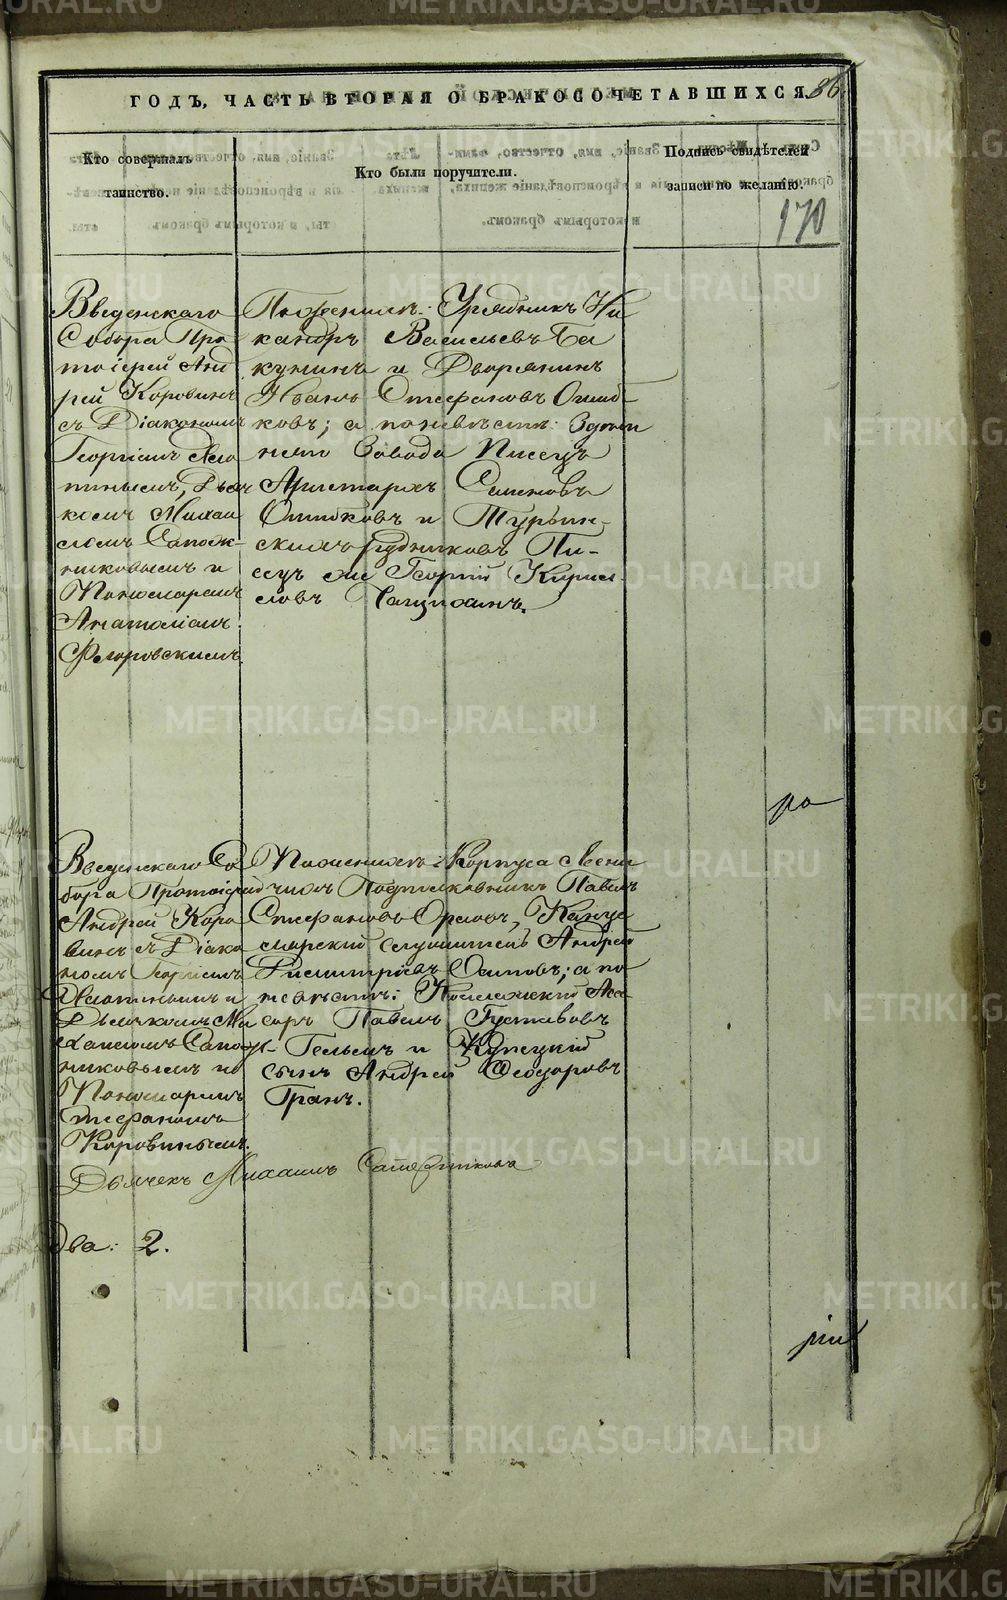 ГОДЪ, ЧАСТЬ ВТОРАЯ О БРАКОСОЧЕТАВШИХСЯ. 86.
Кто совершалъ
таинство.
Кто были поручители.
Подпись свидѣтелей
записи по желанію.
170
Введенскаго
Собора Про
тоіерей Анд
рей Коровинъ
съ Діакономъ
Георгіемъ
Дьяч
комъ Михаи
ломъ Сапож-
никовымъ и
Пономаремъ
Анатоліемъ
Флоровскимъ.
По женихѣ: Урядникъ Ни
кандръ Васильевъ Ба
кунинъ и Дворянинъ
Иванъ Стефановъ Ошиб
ковъ; а по невѣстѣ:
няго Завода Писецъ
Аристархъ Семеновъ
Ошибковъ и Турьин-
скихъ рудниковъ Пи-
сецъ же Георгій Кирил-
ловъ
Введенскаго Со
бора Протоіерей
Андрей Коро
винъ съ Діако
номъ Георгіемъ
и
Дьячкомъ Ми
хаиломъ Сапож-
никовымъ и
Пономаремъ
Стефаномъ
Коровинымъ.
По женихѣ: Корпуса Лѣсни
чихъ Подполковникъ Павелъ
Стефановъ Орловъ, Канце
лярскій служитель Андрей
Димитріевъ Осиповъ; а по
невѣстѣ: Коллежскій Асе-
соръ Павелъ Густавовъ
Гельмъ и Купецкій
сынъ Андрей Ѳеодоровъ
Гранъ.
Дьячекъ Михаилъ Сапожниковъ
Два: 2.
ра
ріи
METRIKI.GASO-URAL.RU